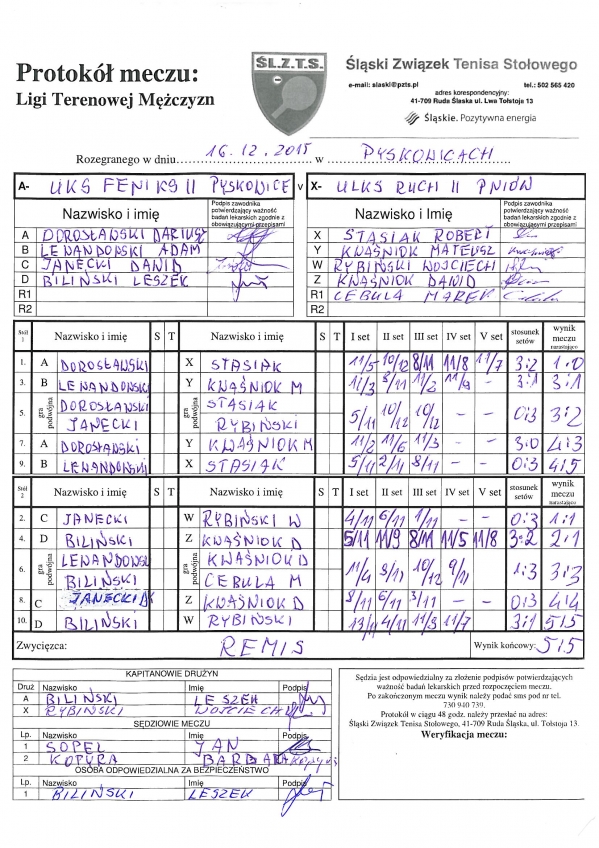 Protokół meczu:
Ligi Terenowej Mężczyzn
ŚL.Z.T.S.
Śląski Związek Tenisa Stołowego
e-mail: slaski@pzts.pl tel.: 502 565 420
adres korespondencyjny:
41-709 Ruda Śląska ul. Lwa Tołstoja 13
Śląskie. Pozytywna energia
Rozegranego w dniu 16.12.2015 w PYSKOWICACH
A- UKS FENIKS II PYSKOWICE v X- ULKS RUCH II PNIÓW
Nazwisko i imię Podpis zawodnika potwierdzający ważność badań lekarskich zgodnie z obowiązującymi przepisami Nazwisko i imię Podpis zawodnika potwierdzający ważność badań lekarskich zgodnie z obowiązującymi przepisami
A DOROSŁAWSKI DARIUSZ X STASIAK ROBERT
B LEWANDOWSKI ADAM Y KWAŚNIOK MATEUSZ
C JANECKI DAWID W RYBIŃSKI WOJCIECH
D BILIŃSKI LESZEK Z KWAŚNIOK DAWID
R1 R1 CEBULA MAREK
R2 R2
Stół 1 Nazwisko i imię S T Nazwisko i imię S T I set II set III set IV set V set stosunek setów wynik meczu narastająco
1. A DOROSŁAWSKI X STASIAK 11/5 10/12 8/11 11/8 11/7 3:2 1:0
3. B LEWANDOWSKI Y KWAŚNIOK M 11/3 8/11 11/2 11/9 - 3:1 3:1
5. gra podwójna DOROSŁAWSKI STASIAK
JANECKI RYBIŃSKI 5/11 10/12 10/12 - - 0:3 3:2
7. A DOROSŁAWSKI Y KWAŚNIOK M 11/2 11/6 11/3 - - 3:0 4:3
9. B LEWANDOWSKI X STASIAK 5/11 2/11 8/11 - - 0:3 4:5
Stół 2 Nazwisko i imię S T Nazwisko i imię S T I set II set III set IV set V set stosunek setów wynik meczu narastająco
2. C JANECKI W RYBIŃSKI W 4/11 6/11 1/11 - - 0:3 1:1
4. D BILIŃSKI Z KWAŚNIOK D 5/11 11/9 8/11 11/5 11/8 3:2 2:1
6. gra podwójna LEWANDOWSKI KWAŚNIOK D
BILIŃSKI CEBULA M 11/4 9/11 10/12 9/11 - 1:3 3:3
8. C JANECKI D Z KWAŚNIOK D 8/11 6/11 3/11 - - 0:3 4:4
10. D BILIŃSKI W RYBIŃSKI 13/11 4/11 11/3 11/7 - 3:1 5:5
Zwycięzca: REMIS Wynik końcowy: 5:5
KAPITANOWIE DRUŻYN
Druż Nazwisko Imię Podpis
A BILIŃSKI LESZEK
X RYBIŃSKI WOJCIECH
SĘDZIOWIE MECZU
Lp. Nazwisko Imię Podpis
1 SOPEL JAN
2 KOPYRA BARBARA
OSOBA ODPOWIEDZIALNA ZA BEZPIECZEŃSTWO
Lp. Nazwisko Imię Podpis
1 BILIŃSKI LESZEK
Sędzia jest odpowiedzialny za złożenie podpisów potwierdzających
ważność badań lekarskich przed rozpoczęciem meczu.
Po zakończonym meczu wynik należy podać sms pod nr tel.
730 940 739.
Protokół w ciągu 48 godz. należy przesłać na adres:
Śląski Związek Tenisa Stołowego, 41-709 Ruda Śląska, ul. Tołstoja 13.
Weryfikacja meczu: